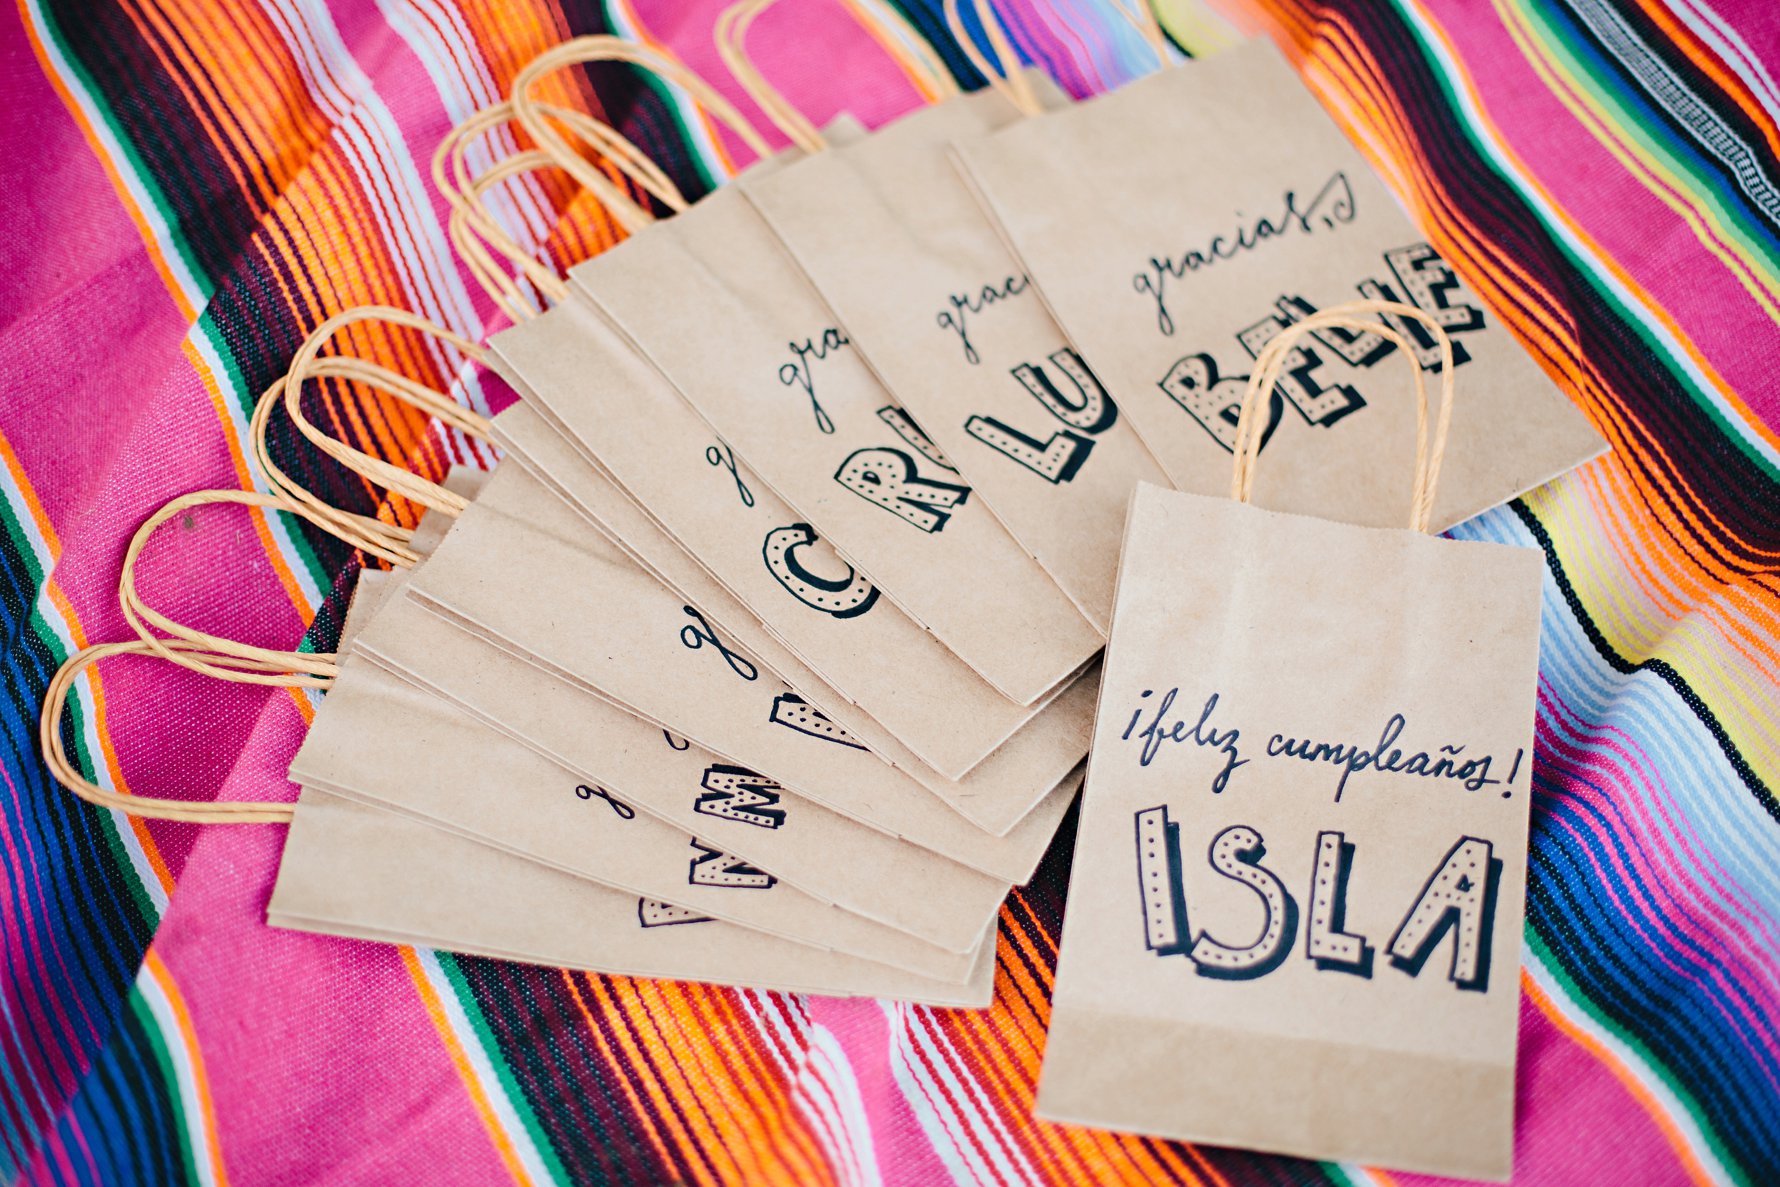 gracias,
BELLE
grac
LU
gra
R
g
C
g
g
¡feliz cumpleaños!
ISLA